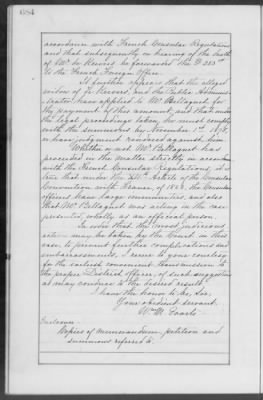 684
accordance with French Consular Regulations
and that subsequently on hearing of the death
of Mr. Le Revere he forwarded the $ 253
to the French Foreign Office.
It further appears that the alleged
widow of Le Revere, and the Public Adminis-
trator have applied to Mr. Bellaguet for
the payment of this amount, and that under
the legal proceedings taken, he must comply
with the summons by November 1st 1878,
or have judgment rendered against him.
Whether or not Mr. Bellaguet has
proceeded in the matter strictly in accordance
with the French Consular Regulations, it is
true that under the Article of the Consular
Convention with France, of 1853, the Consular
officers have large immunities, and also
that Mr. Bellaguet was acting in the case
presented, wholly as an official person.
In order that the most judicious
action may be taken by the Court in this
case to prevent further complications and
embarrassments, I resort to your courtesy
for the earliest convenient transmission to
the proper District officer, of such suggestions
as may conduce to the desired result.
I have the honor to be, Sir,
Your obedient servant,
Wm. M. Evarts
Enclosures
Copies of memorandum, petition and
summons referred to.